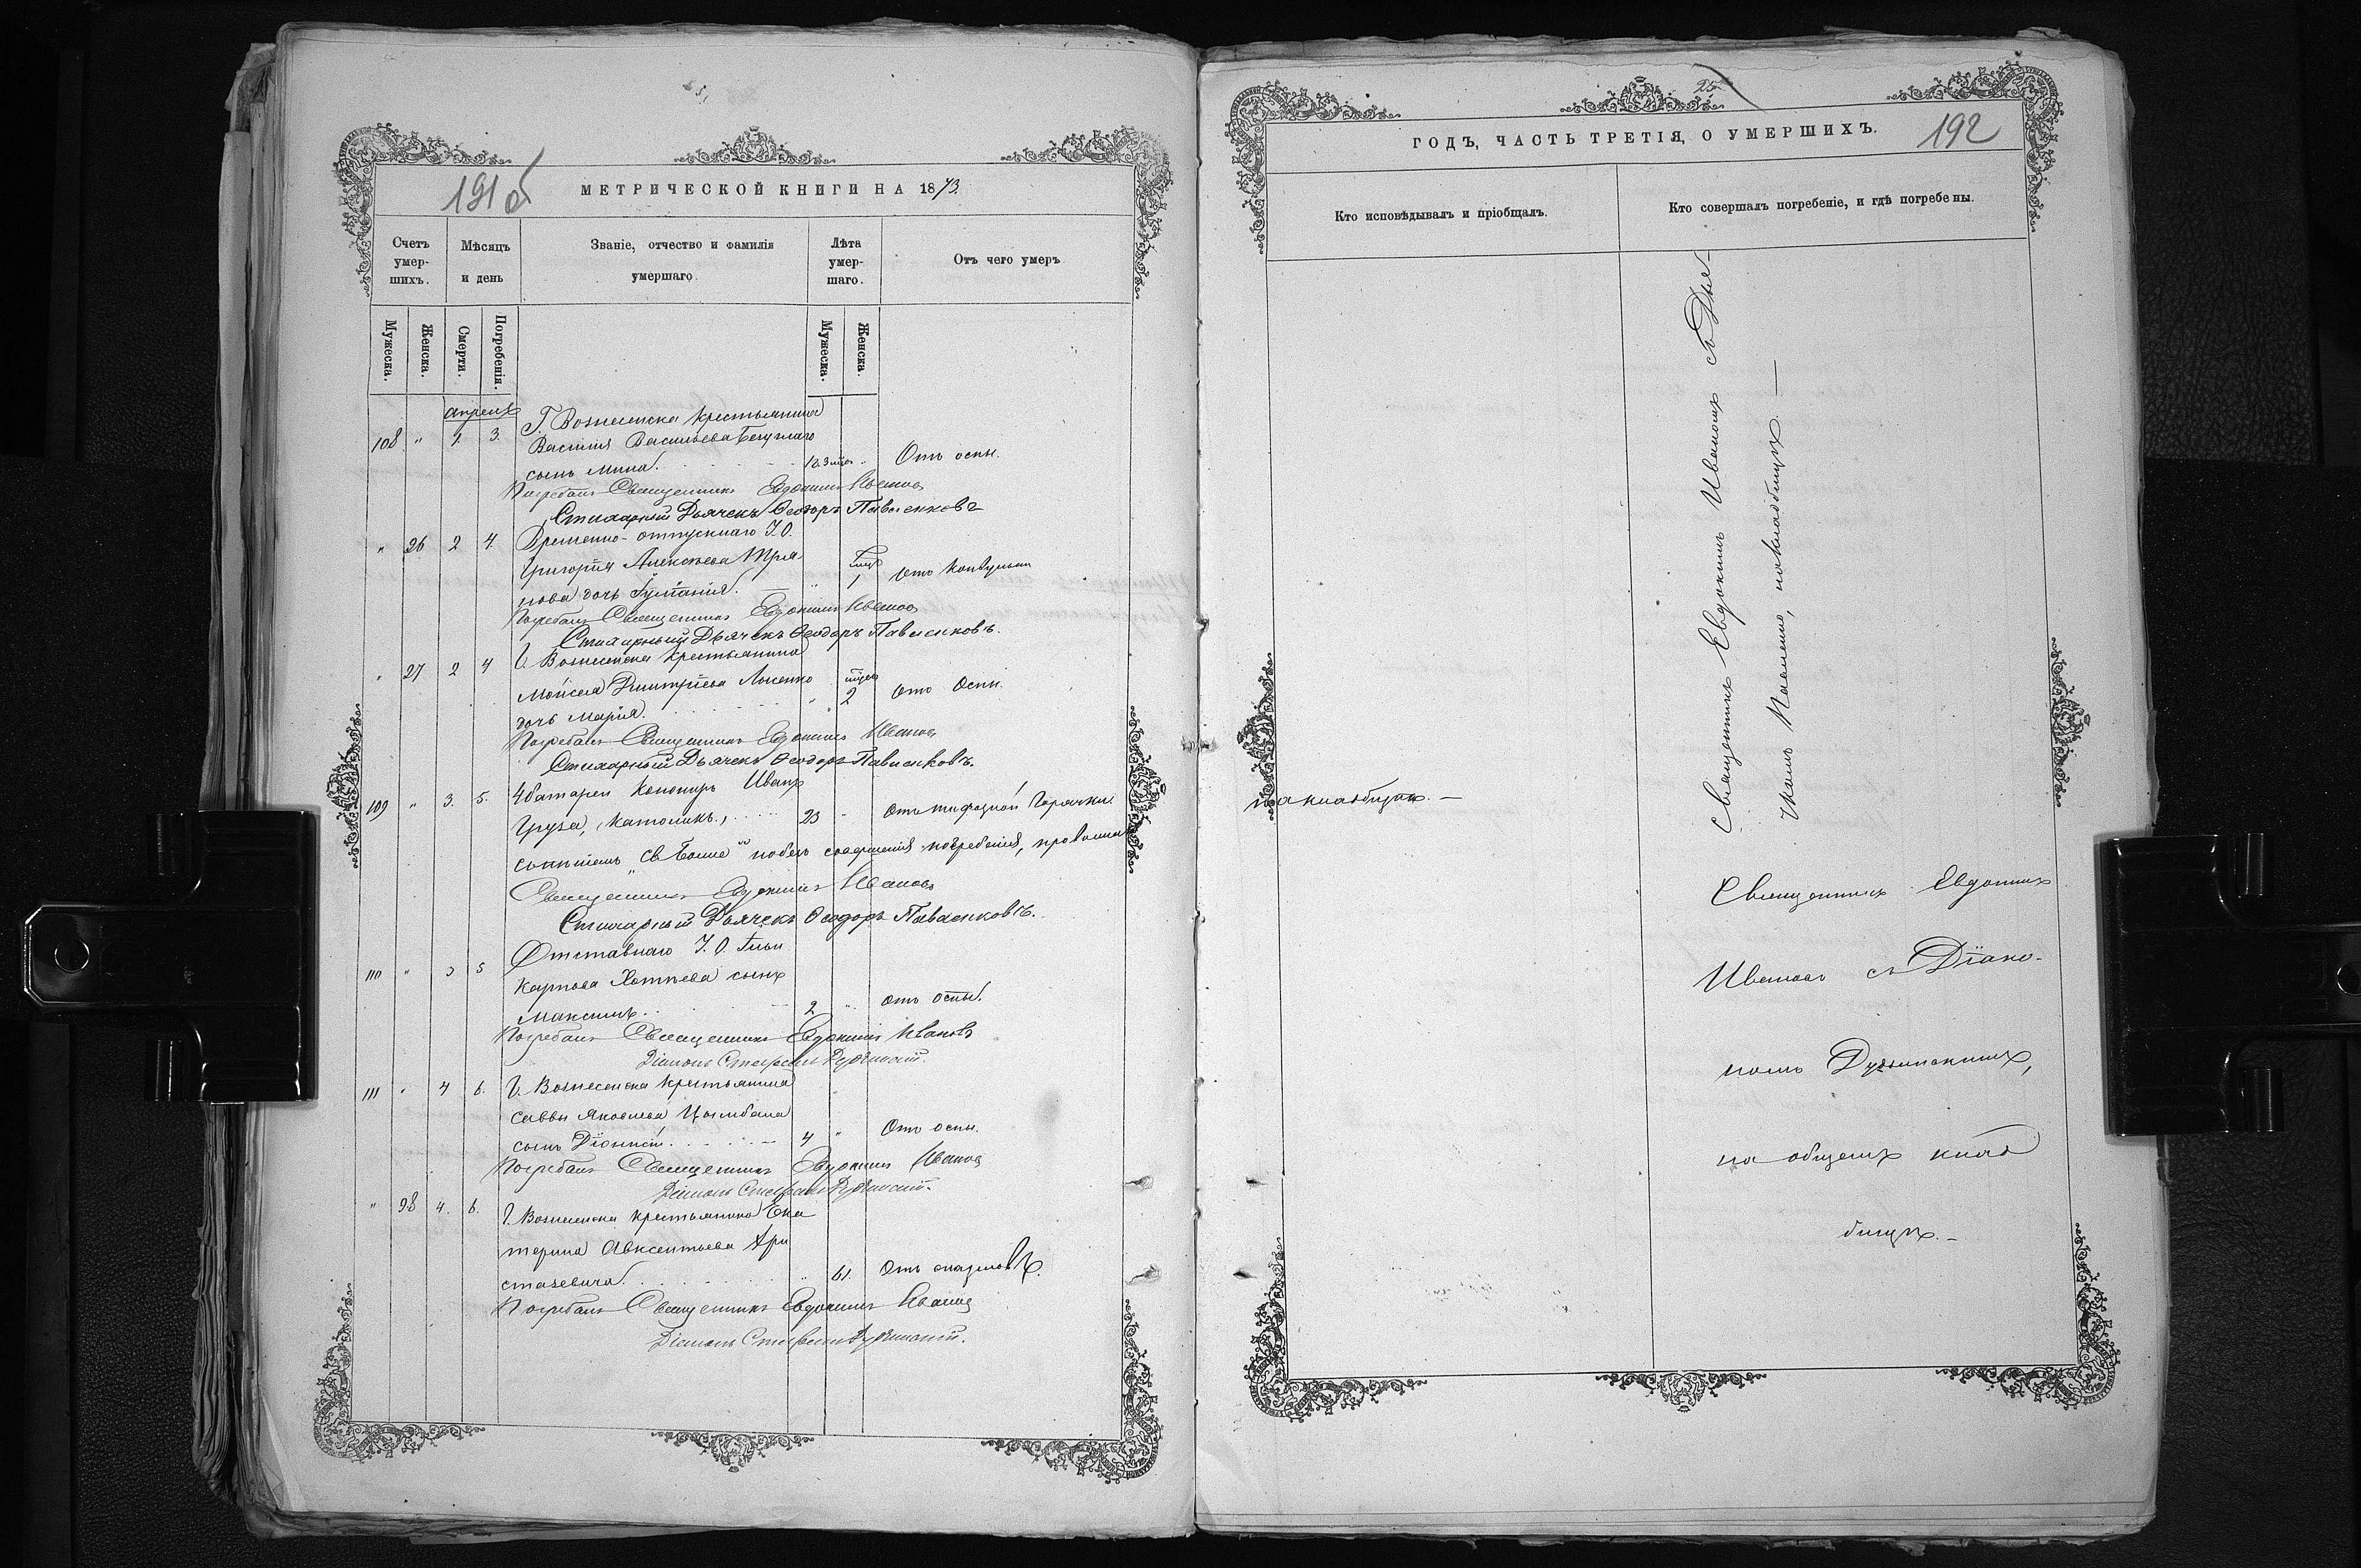 191 об
МЕТРИЧЕСКОЙ КНИГИ НА 1873.
Счетъ умер-шихъ.
Мѣсяцъ и день
Званіе, отчество и фамилія умершаго.
Лѣта умер-шаго.
Отъ чего умеръ
Мужеска.
Женска.
Смерти.
Погребенія.
Мужеска.
Женска.
апрель
Г. Вознесенска крестьянина
108 " 1. 3. Василія Васильева
сынъ Мина. 12 Отъ оспы.
Погребалъ Священникъ Евдокимъ Ивановъ
Стихарный Дьячекъ Ѳеодоръ Павленковъ
" 26 2 4. Временно-отпускнаго У.О.
Григорія Алексѣева
дочь " 1 отъ конвульсіи
Погребалъ Священникъ Евдокимъ Ивановъ
Стихарный Дьячекъ Ѳеодоръ Павленковъ.
" 27 2 4 Г. Вознесенска крестьянина
Моисея Димитріева Лысенко
дочь Марія. " 2 отъ Оспы.
Погребалъ Священникъ Евдокимъ Ивановъ
Стихарный Дьячекъ Ѳеодоръ Павленковъ.
109 " 3. 5. 4 батареи Канониръ Иванъ
Груза, (католикъ) 23 " Отъ тифозной Горячки
съ пѣніемъ „Св. Боже" по безъ совершенія погребенія,
Священникъ Евдокимъ Ивановъ
Стихарный Дьячекъ Ѳеодоръ Павленковъ.
110 " 3 5 Отставнаго У.О. Ильи
Карпова сынъ
Максимъ. 2 " отъ оспы.
Погребалъ Священникъ Евдокимъ Ивановъ
Діаконъ Стефанъ
111 " 4 6. Г. Вознесенска крестьянина
Саввы Яковлева Цымбала
сынъ Діонисій. 4 " Отъ оспы.
Погребалъ Священникъ Евдокимъ Ивановъ
Діаконъ Стефанъ
" 98 4. 6. Г. Вознесенска крестьянина Ека
терина Авксентьева Хри
стазевича. " 61. Отъ спазмовъ.
Погребалъ Священникъ Евдокимъ Ивановъ
Діаконъ Стефанъ
25
192
ГОДЪ, ЧАСТЬ ТРЕТІЯ, О УМЕРШИХЪ.
Кто исповѣдывалъ и пріобщалъ.
Кто совершалъ погребеніе, и гдѣ погребены.
Священникъ Евдокимъ Ивановъ съ Дья-
чкомъ Павленко, на кладбищѣ. —
на кладбищѣ. —
Священникъ Евдокимъ
Ивановъ съ Діако-
номъ
на общемъ клад
бищѣ. —